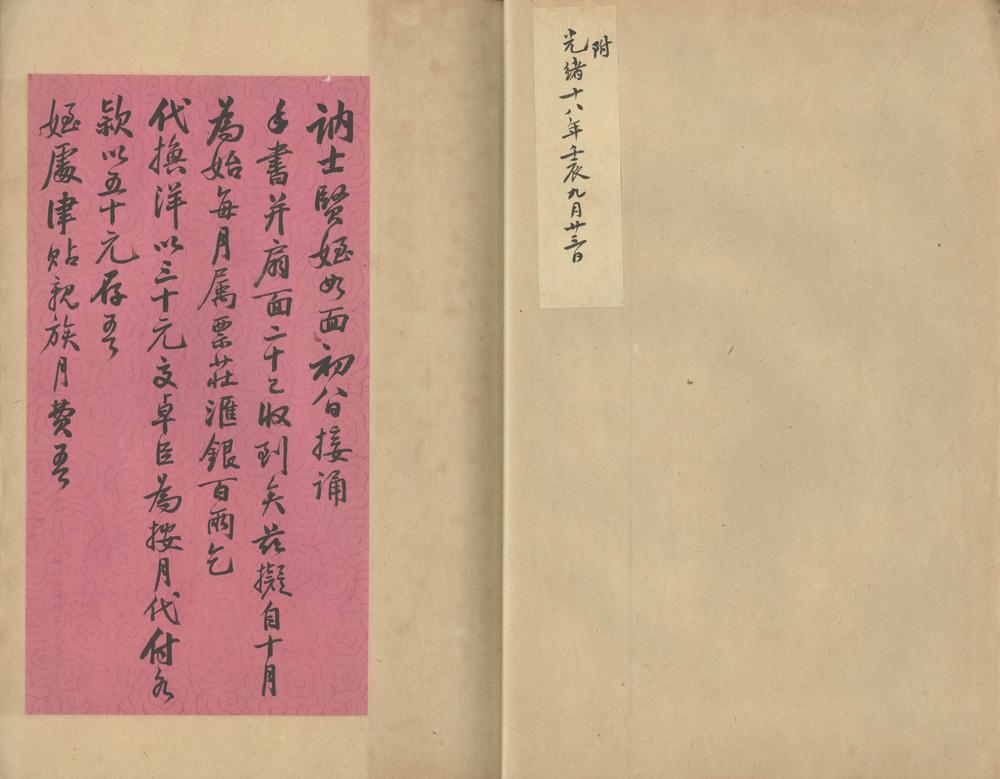 附
光緒十八年壬辰九月廿三日
訥士賢姪如面初八日接誦
手書并扇面二十已收到矣茲擬自十月
為始每月屬票莊滙銀百兩乞
代換洋以三十元交卓臣為按月代付各
款以五十元存吾
姪處津貼親族月費吾